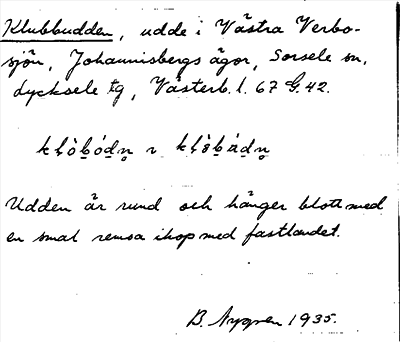 Klubbudden, udde i Västra Verbo-
sjön, Johannisbergs ägor, Sorsele sn,
Lycksele tg, Västerb. l. 67 G. 42.
Udden är rund och hänger blott med
en smal remsa ihop med fastlandet.
B. Nygren 1935.